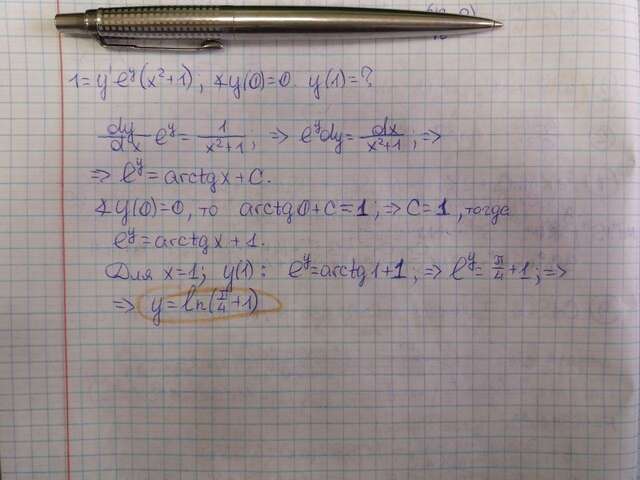 1 = y' e^y (x²+1); ∢ y(0)=0. y(1)=?
dy/dx e^y = 1/(x²+1); ⇒ e^y dy = dx/(x²+1); ⇒
⇒ e^y = arctg x + C.
∢ y(0)=0, то arctg 0 + C = 1; ⇒ C = 1, тогда
e^y = arctg x + 1.
Для x=1; y(1): e^y = arctg 1 + 1; ⇒ e^y = π/4 + 1; ⇒
⇒ y = ln(π/4 + 1)